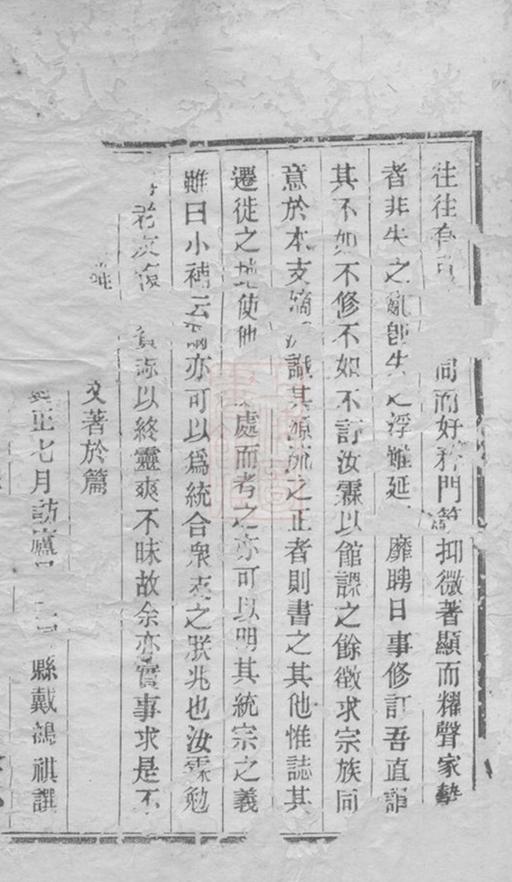 往往有同而好矜門第抑微著顯而耀聲家藝
者非失之亂卽失之浮難延靡聘日事修訂吾直謂
其不如不修不如不訂汝霖以館課之餘徵求宗族同
意於本支嫡派識其源流之正者則書之其他惟誌其
遷徙之地使他處而考之亦可以明其統宗之義
雖曰小補云爾亦可以爲統合衆支之朕兆也汝霖勉
老友復以終靈爽不昧故余亦實事求是不
文著於篇
正七月訪縣戴鴻祺譔